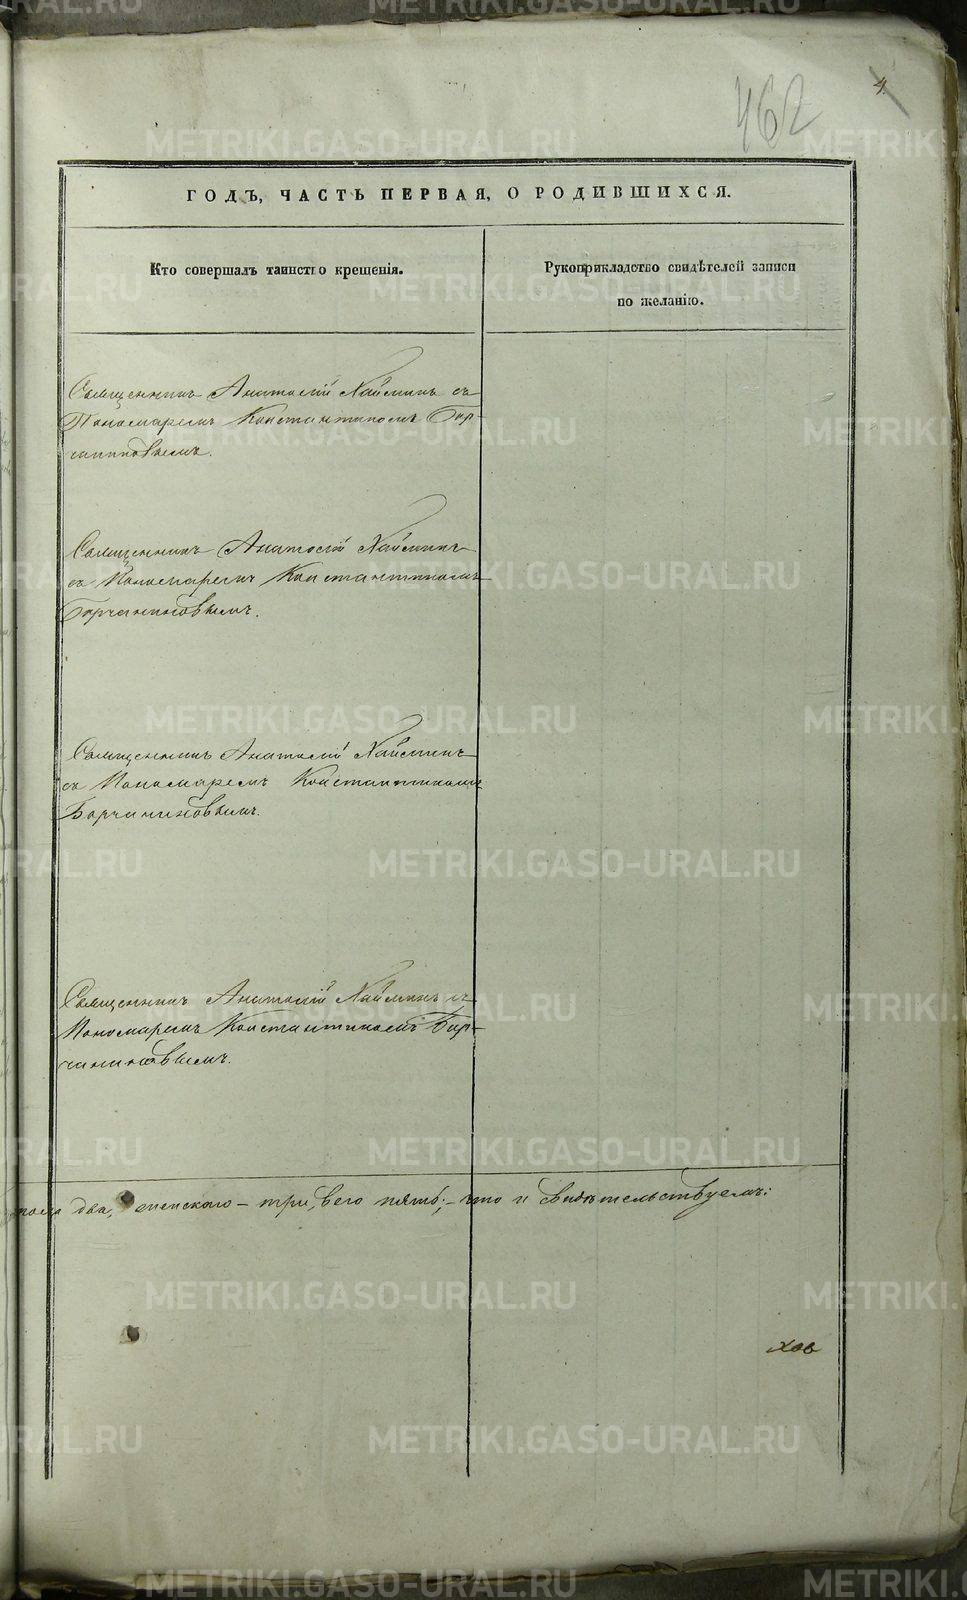 462
4.
ГОДЪ, ЧАСТЬ ПЕРВАЯ, О РОДИВШИХСЯ.
Кто совершалъ таинство крещенія.
Рукоприкладство свидѣтелей записи
по желанію.
Священникъ Анатолій Наймимъ съ
Пономаремъ Константиномъ Бор-
чаниновымъ.
Священникъ Анатолій Наймимъ
съ Пономаремъ Константиномъ
Борчаниновымъ.
Священникъ Анатолій Наймимъ
съ Пономаремъ Константиномъ
Борчаниновымъ.
Священникъ Анатолій Наймимъ съ
Пономаремъ Константиномъ Бор-
чаниновымъ.
пола два, женскаго – три, всего пять; – что и свидѣтельствуемъ:
METRIKI.GASO-URAL.RU